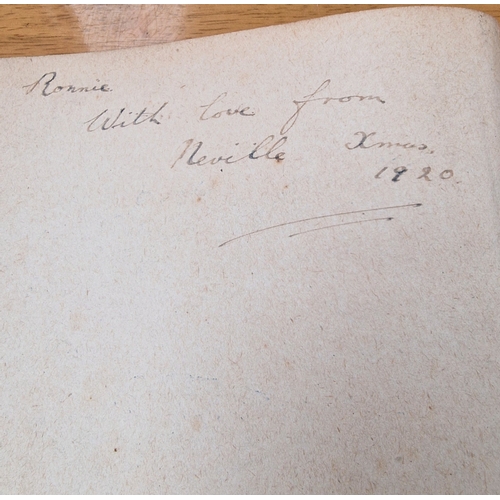 Ronnie
With love from
Neville Xmas.
1920.